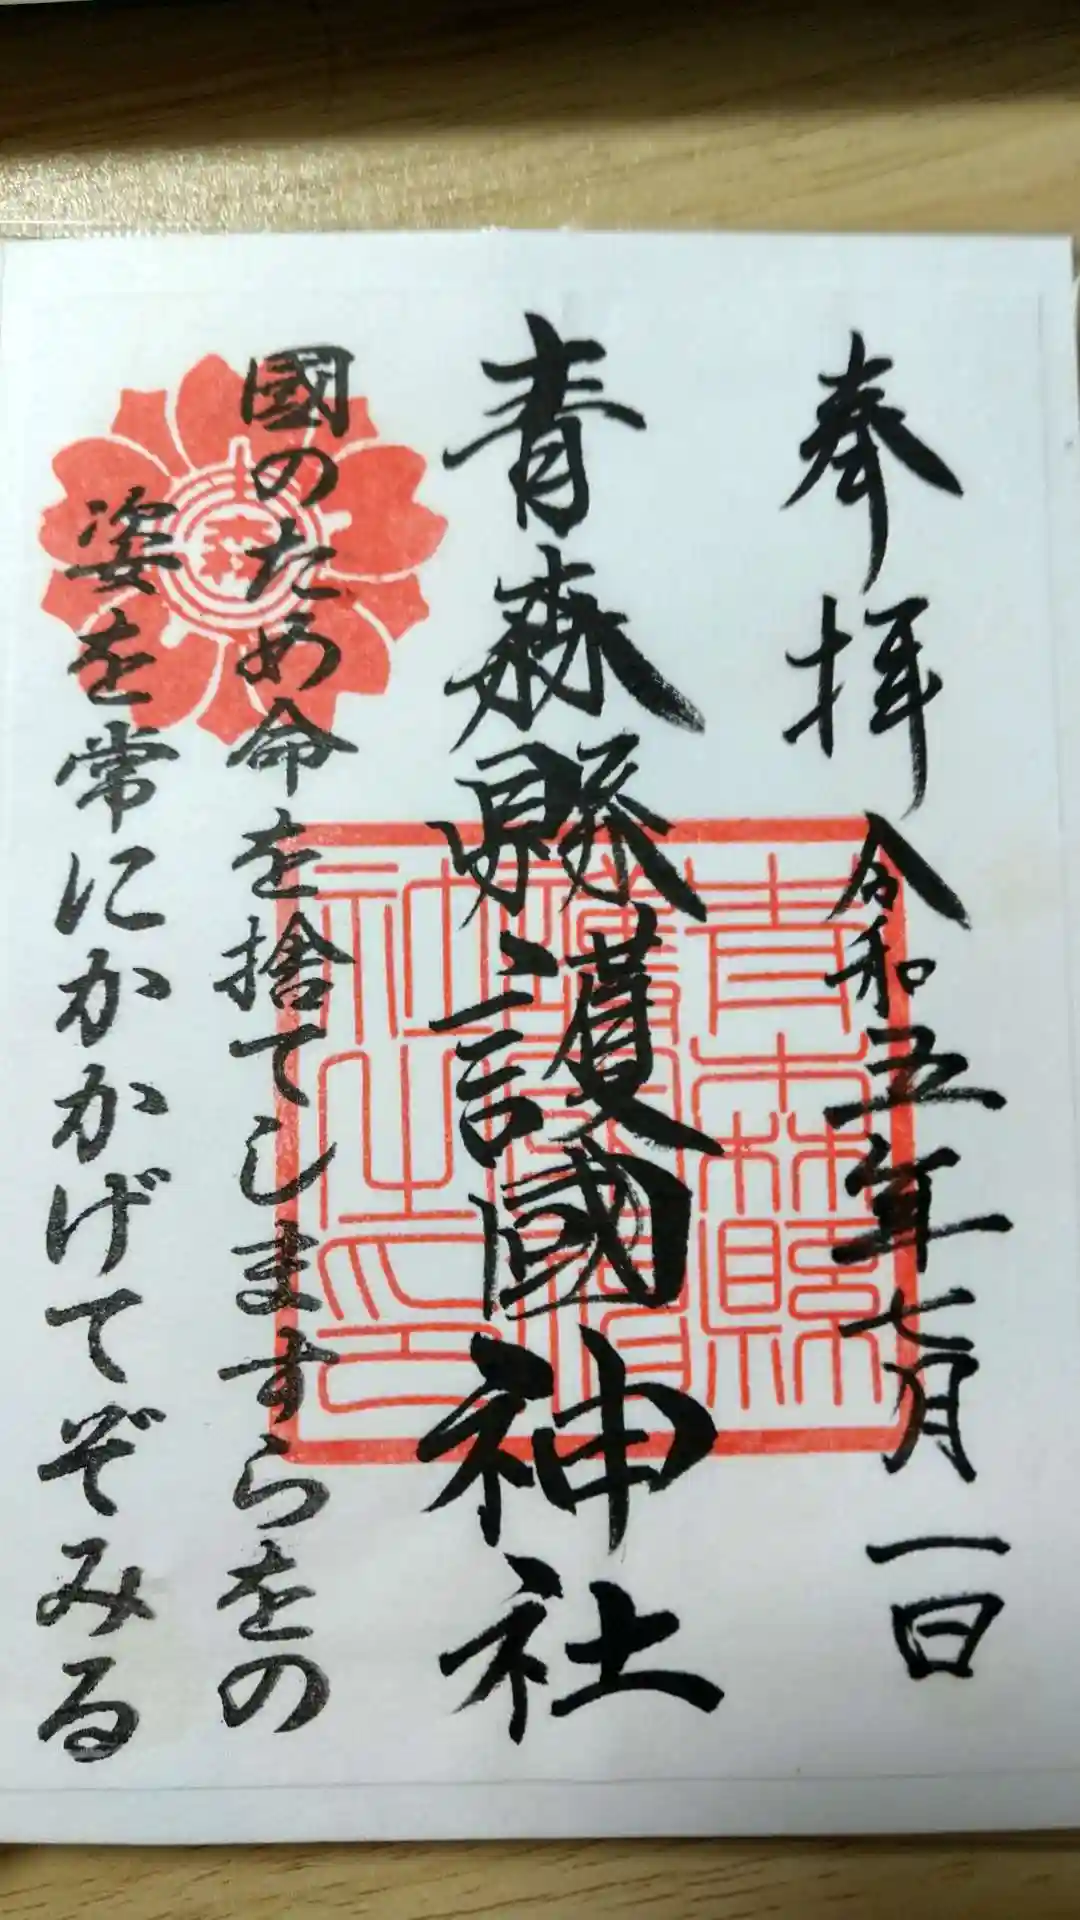 奉拝 令和五年七月一日
青森縣護國神社
國のため命を捨てしますらをの
姿を常にかかげてぞみる
青森縣
護國神
社之印
青森